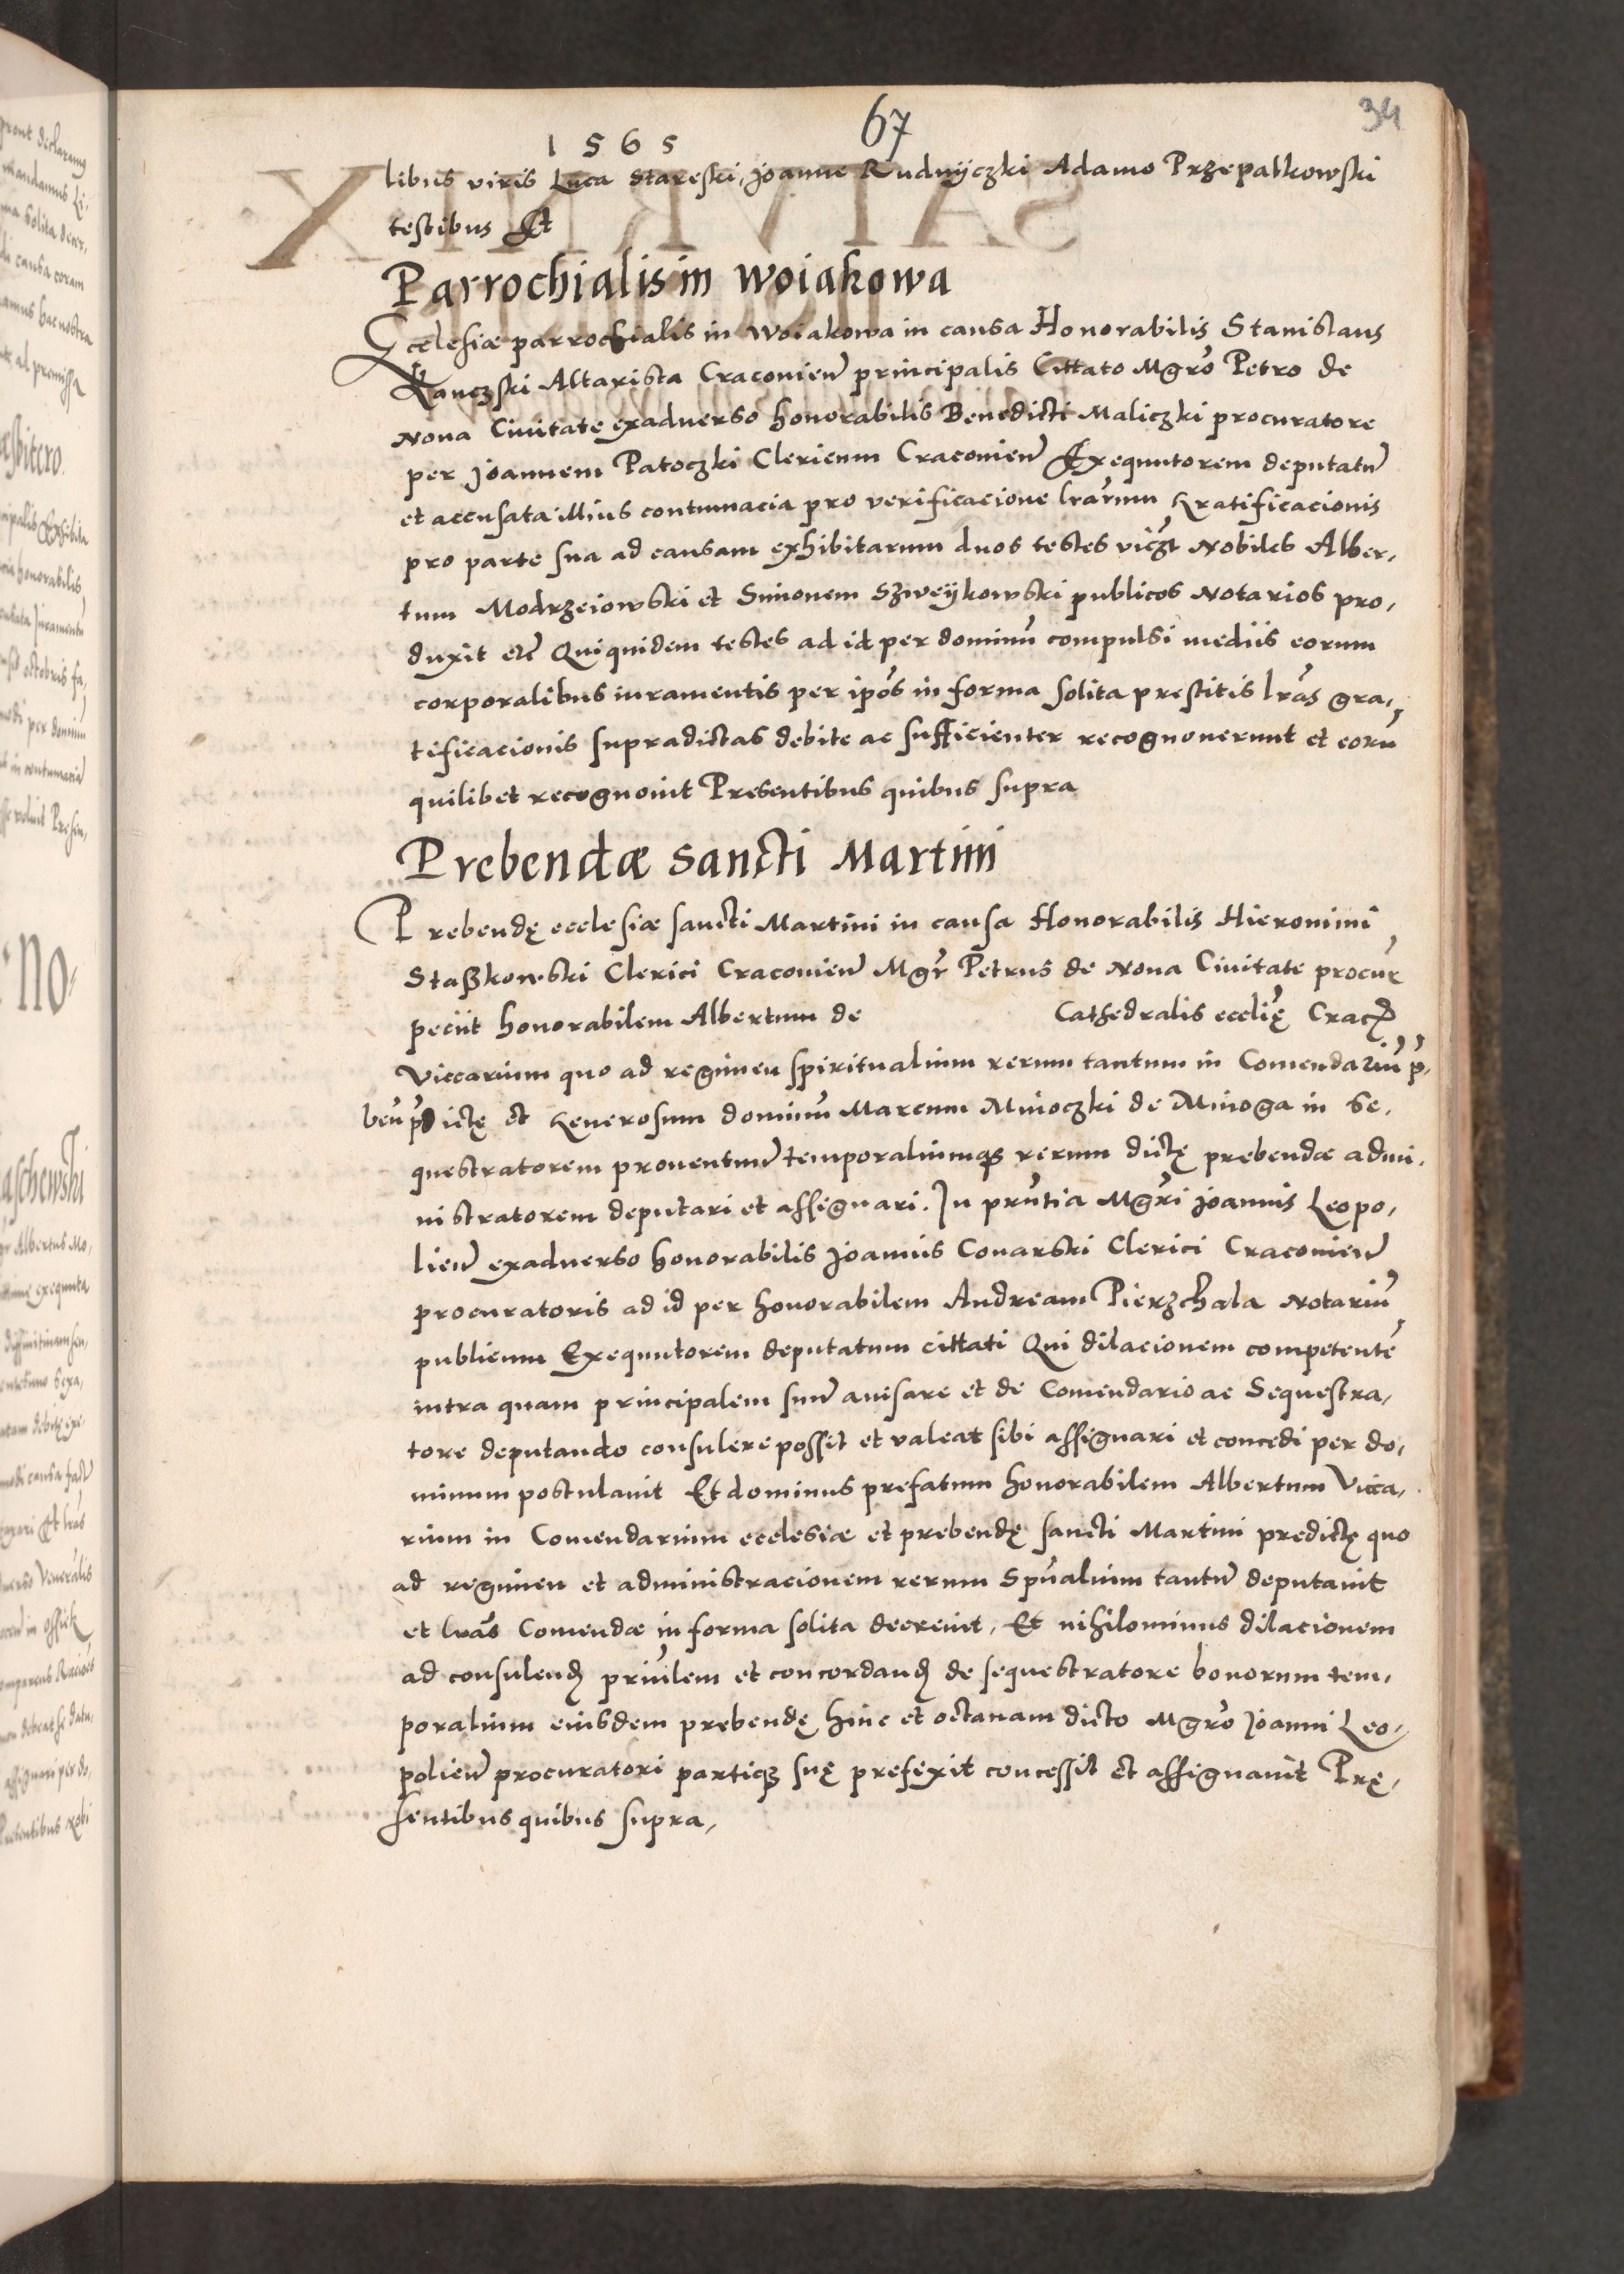 67
34
1565
libus viris Luca Stareski, Joanne Rudnÿczki Adamo Przepalkowski
testibus Et
Parrochialis in Woiakowa
Ecclesiæ parrochialis in Woiakowa in causa Honorabilis Stanislaus
Altarista Cracovieñ principalis Cittato Mgrõ Petro de
Nova Civitate exadverso honorabilis Benedicti Maliczki procuratore
per Joannem Patoczki Clericum Cracovieñ Exequutorem deputatũ
et accusata illius contumacia pro verificacione lrãrum gratificacionis
pro parte sua ad causam exhibitarum duos testes viczt Nobiles Alber,
tum Modrzeiowski et Simonem Szweÿkowski publicos Notarios pro,
duxit etc̃ Quiquidem testes ad id per dominũ compulsi mediis eorum
corporalibus iuramentis per ip̃os in forma solita prestitis lrãs gra,
tificacionis supradictas debite ac sufficienter recognoverunt et eorũ
quilibet recognovit Presentibus quibus supra
Prebendæ Sancti Martini
Prebendę ecclesiæ sancti Martini in causa Honorabilis Hieronimi
Staßkowski Clerici Cracovieñ Mgr̃ Petrus de Nova Civitate procur̃
peciit honorabilem Albertum de Cathedralis ecclię̃ Crac̃
Viccarium quo ad regimen spiritualium rerum tantum in Comendariũ p̃,
beñ p̃dictę et Generosum dominũ Marcum Minoczki de Minoga in se,
questratorem proventuũ temporaliumqȝ rerum dictę prebendæ admi,
nistratorem deputari et assignari. In prñtia Mgrĩ Joannis Leopo,
lieñ exadverso honorabilis Joannis Conarski Clerici Cracovieñ
procuratoris ad id per honorabilem Andream Pierzchala Notariũ
publicum Exequutorem deputatum cittati Qui dilacionem competentẽ
intra quam principalem suũ avisare et de Comendario ac Sequestra,
tore deputando consulere possit et valeat sibi assignari et concedi per do,
minum postulavit Et dominus prefatum honorabilem Albertum Vicca,
rium in Comendarium ecclesiæ et prebendę sancti Martini predictę quo
ad regimen et administracionem rerum Spũalium tantũ deputavit
et lrãs Comendæ in forma solita decrevit, Et nihilominus dilacionem
ad consulend̨ prĩnlem et concordand̨ de sequestratore bonorum tem,
poralium eiusdem prebendę hinc et octavam dicto Mgrõ Joanni Leo,
polieñ procuratori partiqȝ suę prefixit concessit et assignavit Prę,
sentibus quibus supra,